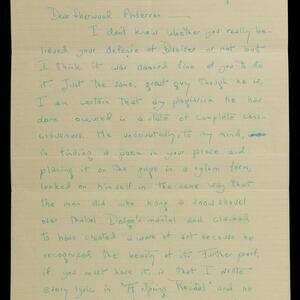 Dear Sherwood Anderson
I don't know whether you really be-
lieved your defense of Dreiser or not but
I think it was damned fine of you to do
it. Just the same, great guy though he is,
I am certain that any plagiarism he has
done occured in a state of complete cons-
ciousness. He undoubtedly, to my mind,
in finding a poem in your prose and
placing it on the page in a form,
looked on himself in the same way that
the man did who hung a snow shovel
over Mabel Dodge's mantel and claimed
to have created a work of art because he
recognized the beauty of it. Further proof,
if you must have it, is that I wrote
every lyric in "A Spring Recital" and no